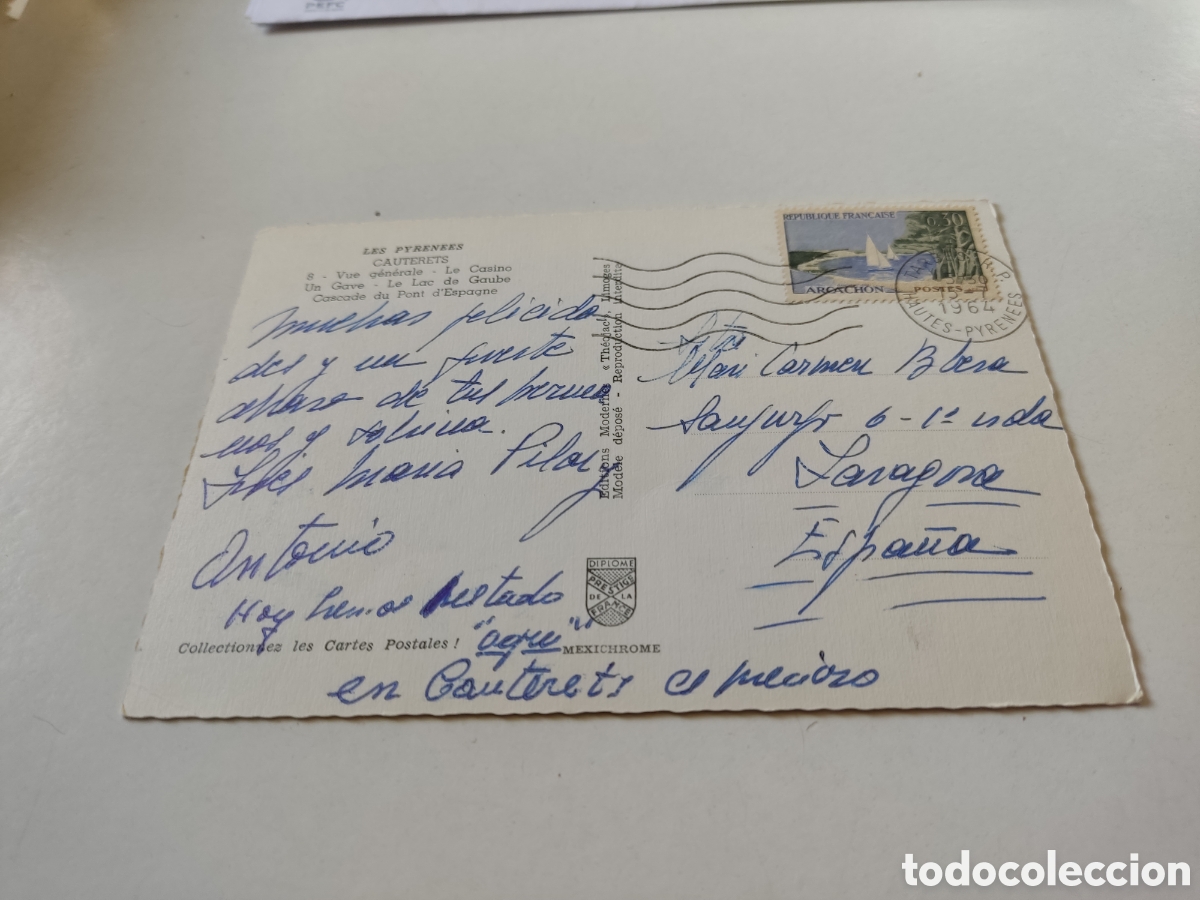 PEFC
LES PYRENEES
CAUTERETS
8 - Vue générale - Le Casino
Un Gave - Le Lac de Gaube
Cascade du Pont d'Espagne
muchas felicida
des y un fuerte
abrazo de tus herma
nos y sobrina.
Maria Pilar
Antonio
Hoy hemos estado
"aqui"
en Cauterets
Collectionnez les Cartes Postales !
MEXICHROME
Editions Modernes «Théojac», Limoges
Modèle déposé - Reproduction interdite
DIPLOME
PRESTIGE
DE LA
FRANCE
REPUBLIQUE FRANÇAISE
0,30
ARCACHON
POSTES
1964
HAUTES-PYRENEES
Srta
Mari Carmen
Sanjurjo 6-1º
Zaragoza
España
todocoleccion